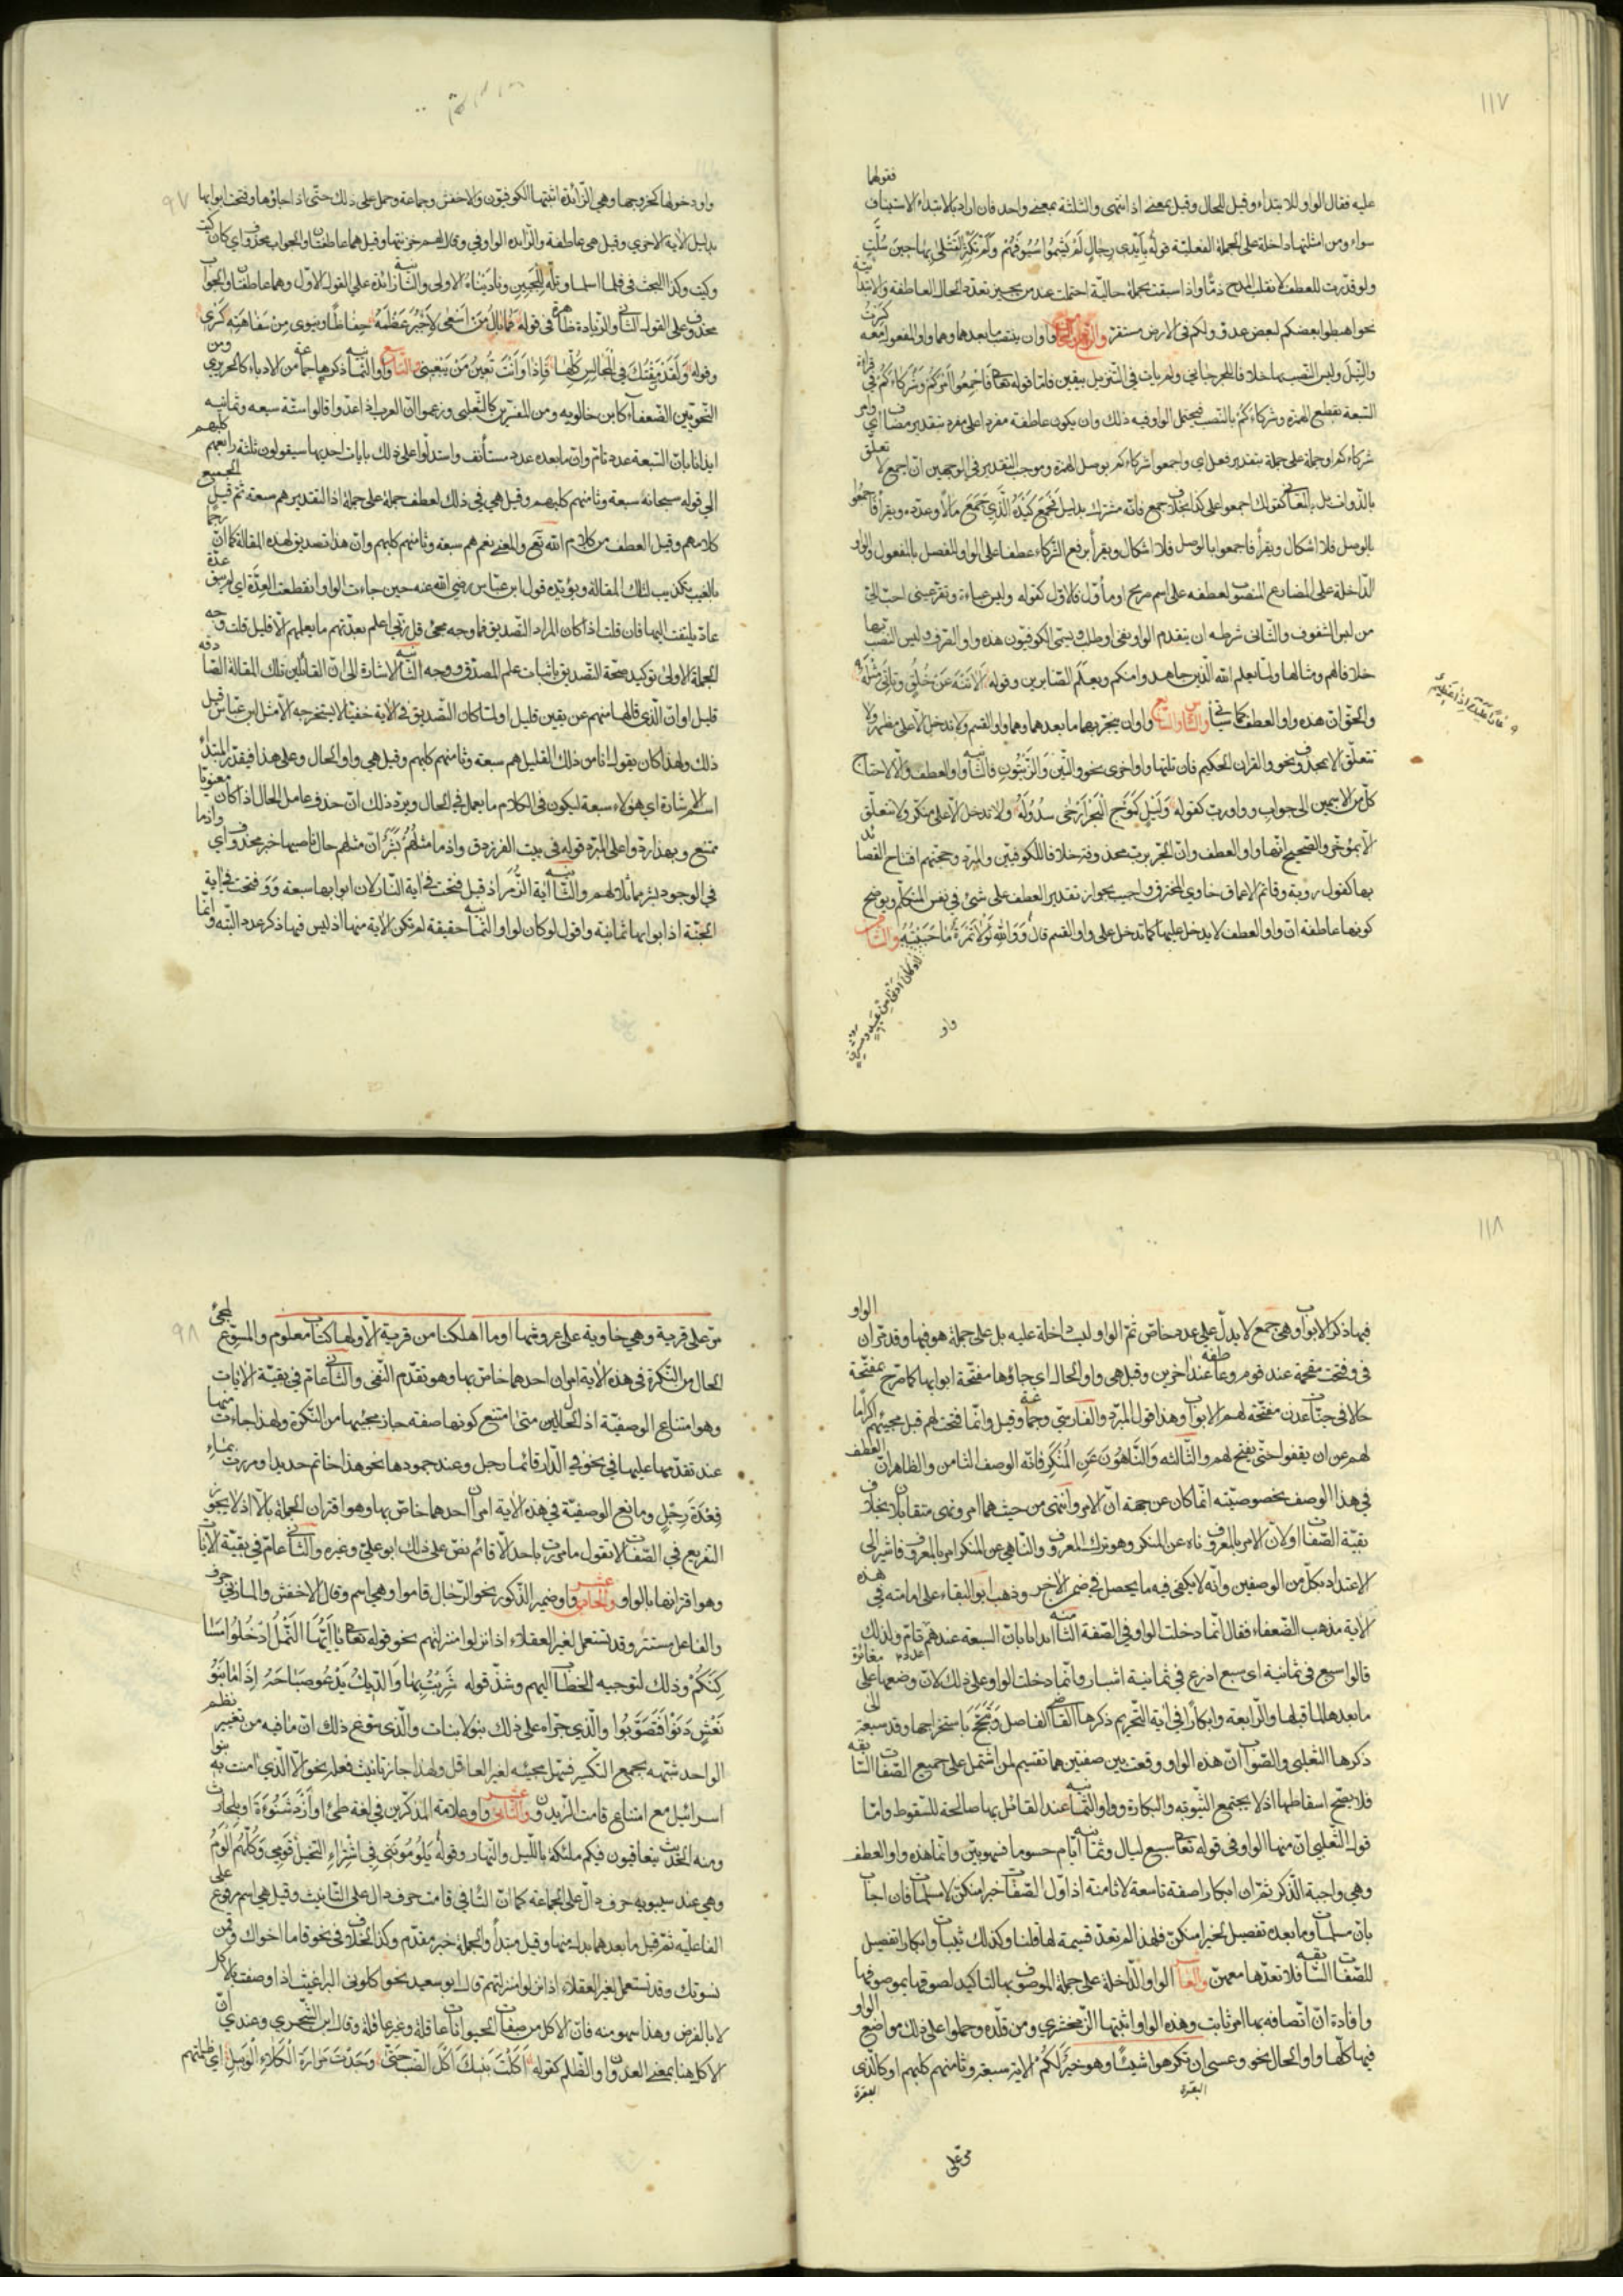 ١١٧
فقولهما
عليه فقال الواو للابتداء وقيل للحال وقيل بمعنى اذ انتهى والثلثة بمعنى واحد فان اراد بالابتداء الاستيناف
سواء ومن امثلتها داخلة على الجملة الفعلية قوله بِاَيْدى رِجالٍ لَمْ يَشيموا سُيُوفَهُمْ وَلَمْ تَكْثُرِ القَتْلى بِها حينَ سُلَّتِ
ولو قدرت للعطف لانقلب المدح ذمًا واذا سبقت بجملة حالية احتملت عند من يجيز تعدد الحال العاطفة والابتدائية
نحو اهبطوا بعضكم لبعض عدو ولكم فى الارض مستقر والرابع والخامس واوان ينتصب ما بعدهما وهما واو المفعول معه كسرت
والنيل وليس النصب بها خلافا للجرجانى ولم يات فى التنزيل بيقين فاما قوله تعالى فَاَجْمِعُوا اَمْرَكُمْ وَشُرَكاءَكُمْ فى قراءة
السبعة بقطع الهمزة وشركاءكم بالنصب فيحتمل الواو فيه ذلك وان يكون عاطفة مفردا على مفرد بتقدير مضاف اى وامر
شركاءكم او جملة على جملة بتقدير فعل اى واجمعوا شركاءكم بوصل الهمزة وموجب التقدير فى الوجهين ان اجمع لا تعلق
بالذوات بل بالمعانى كقولك اجمعوا على كذا بخلاف جمع فانه مشترك بدليل فَجَمَعَ كَيْدَهُ الَّذى جَمَعَ مالاً وعدده ويقرأ فاجمعوا
بالوصل فلا اشكال ويقرأ فاجمعوا بالوصل فلا اشكال ويقرأ برفع الشركاء عطفا على الواو للفصل بالمفعول والواو
الداخلة على المضارع المنصوب لعطفه على اسم صريح او مأول فالاول كقوله ولبس عباءة وتقر عينى احب الى
من لبس الشفوف والثانى شرطه ان يتقدم الواو نفى او طلب ويسمى الكوفيون هذه واو الصرف وليس النصب بها
خلافا لهم ومثالها ولما يعلم الله الذين جاهدوا منكم ويعلم الصابرين وقوله لا تَنْهَ عَنْ خُلُقٍ وتَأتِىَ مِثْلَهُ
عارٌ عَلَيْكَ اِذا فَعَلْتَ عَظيم
والحق ان هذه واو العطف كما سيأتى والسادس والسابع واوان ينجر بهما ما بعدهما وهما واو القسم ولا تدخل الا على مظهر ولا
تتعلق الا بمحذوف نحو والقران الحكيم فان تلتها واو اخرى نحو والتّين وَالزّيتُونِ فالثانية واو العطف والا لاحتاج
كل من الاسمين الى جواب وواو رب كقوله وَلَيْلٍ كَمَوْجِ الْبَحْرِ اَرْخى سُدُولَهُ ولا تدخل الا على منكر ولا تتعلق
الا بمؤخر والصحيح انها واو العطف وان الجر برب محذوفة خلافا للكوفيين والمبرد وحجتهم افتتاح القصائد
بها كقول روبة وقاتم الاعماق خاوى المخترق واجيب بجواز تقدير العطف على شئ فى نفس المتكلم ويوضح
كونها عاطفة ان واو العطف لا يدخل عليها كما تدخل على واو القسم قال وَوَاللهِ لَوْلا تَمْرُهُ ما حَبَبْتُهُ والثامن
واو
٩٧
واو دخولها كخروجها وهى الزائدة اثبتها الكوفيون والاخفش وجماعة وحمل على ذلك حتى اذا جاؤها وفتحت ابوابها
بدليل الآية الاخرى وقيل هى عاطفة والزايدة الواو فى وقال لهم خزنتها وقيل هما عاطفتان والجواب محذوف اى كان كيت
وكيت وكذا البحث فى فلما اسلما وتَلَّهُ لِلْجَبينِ ونادَيْناهُ الاولى والثانية زائدة على القول الاول وهما عاطفتان والجواب
محذوف على القول الثانى والزيادة ظاهرة فى قوله فَما بالُ مَنْ اَسْعى لِاَجْبُرَ عَظْمَهُ حِفاظًا وينوى مِنْ سَفاهَتِهِ كَسْرى
وقوله وَلَقَدْ رَمَقْتُكَ فِى المَجالِسِ كُلِّها فَاِذا وَاَنْتَ تُعينُ مَنْ يَبْغينى والتاسع واو الثمانية ذكرها جماعة من الادباء كالحريرى ومن
النحويين الضعفاء كابن خالويه ومن المفسرين كالثعلبى وزعموا ان العرب اذا عدوا قالوا ستة سبعة وثمانية
ايذانا بان السبعة عدد تام وان ما بعده عدد مستأنف واستدلوا على ذلك بايات احديها سيقولون ثلثة رابعهم كلبهم
الى قوله سبحانه سبعة وثامنهم كلبهم وقيل هى فى ذلك لعطف جملة على جملة اذ التقدير هم سبعة ثم قيل الجميع
كلامهم وقيل العطف من كلام الله تعالى والمعنى نعم هم سبعة وثامنهم كلبهم وان هذا تصديق لهذه المقالة كما ان رجما
بالغيب تكذيب لتلك المقالة ويؤيده قول ابن عباس رضى الله عنه حين جاءت الواو انقطعت العدة اى لم يبق عدة
عاد يلتفت اليها فان قلت اذا كان المراد التصديق فما وجه مجئ قل ربى اعلم بعدتهم ما يعلمهم الا قليل قلت وجه
الجملة الاولى توكيد صحة التصديق باثبات علم المصدق ووجه الثانية الاشارة الى ان القائلين تلك المقالة الصادقة
قليل او ان الذى قالها منهم عن يقين قليل او لما كان التصديق فى الآية خفيا لا يستخرجه الا مثل ابن عباس قيل
ذلك ولهذا كان يقول انا من ذلك القليل هم سبعة وثامنهم كلبهم وقيل هى واو الحال وعلى هذا فيقدر المبتدأ
اسم الاشارة اى هؤلاء سبعة ليكون فى الكلام ما يعمل فى الحال ويرد ذلك ان حذف عامل الحال اذا كان معنويا
ممتنع وبهذا ردوا على المبرد قوله فى بيت الفرزدق واذ ما مثلُهُم بَشَرٌ ان مثلهم حال ناصبها خبر محذوف اى واذ ما
فى الوجود بشر مماثلا لهم والثانية آية الزُّمَر اذ قيل فتحت فى اية النار لان ابوابها سبعة وَوَفتحت فى اية
الجنة اذ ابوابها ثمانية واقول لو كان لواو الثمانية حقيقة لم تكن الآية منها اذ ليس فيها ذكر عدد البتة وانما
١١٨
فيها ذكر الابواب وهى جمع لا يدل على عدد خاص ثم الواو ليست داخلة عليه بل على جملة هو فيها وقد مر ان الواو
فى وفتحت مقحمة عند قوم وعاطفة عند اخرين وقيل هى واو الحال اى جاؤها مفتحة ابوابها كما صرح بمفتحة
حالا فى جنات عدن مفتحة لهم الابواب وهذا قول المبرد والفارسى وجماعة وقيل وانما فتحت لهم قبل مجيئهم اكراما
لهم عن ان يقفوا حتى يفتح لهم والثالثه وَالنّاهُونَ عَنِ الْمُنْكَرِ فانه الوصف الثامن والظاهر ان العطف
فى هذا الوصف بخصوصيته انما كان عن جهة ان الامر والنهى من حيث هما امر ونهى متقابلان بخلاف
بقية الصفات او لان الامر بالمعروف ناه عن المنكر وهو ترك المعروف والناهى عن المنكر امر بالمعروف فاشير الى
الاعتداد بكل من الوصفين وانه لا يكفى فيه ما يحصل فى ضمن الاخر وذهب ابو البقاء على امامته فى هذه
الآية مذهب الضعفاء فقال انما دخلت الواو فى الصفة الثامنة ايذانا بان السبعة عندهم عدد تام ولذلك
قالوا سبع فى ثمانية اى سبع اذرع فى ثمانية اشبار وانما دخلت الواو على ذلك لان وضعها على مغائرة
ما بعدها لما قبلها والرابعة وابكارًا فى اية التحريم ذكرها القاضى الفاضل وتبجح باستخراجها وقد سبقه الى
ذكرها الثعلبى والصواب ان هذه الواو وقعت بين صفتين هما تقسيم لمن اشتمل على جميع الصفات السابقه
فلا يصح اسقاطها اذ لا يجتمع الثيوبه والبكارة وواو الثمانية عند القائل بها صالحة للسقوط واما
قول الثعلبى ان منها الواو فى قوله تعالى سبع ليال وثمانية ايام حسوما فسهو بين وانما هذه واو العطف
وهى واجبة الذكر ثم ان ابكارا صفة تاسعة لا ثامنة اذ اول الصفات خيرا منكن لا مسلمات فان اجاب
بان مسلمات وما بعده تفصيل لخيرا منكن فلهذا لم تعد قسيمة لها قلنا وكذلك ثيبات وابكارا تفصيل
للصفات السابقه فلا تعدها معهن والعاشر الواو الداخلة على جملة الموصوف بها لتاكيد لصوقها بموصوفها
وافادة ان اتصافه بها امر ثابت وهذه الواو اثبتها الزمخشرى ومن قلده وحملوا على ذلك مواضع الواو
فيها كلها واو الحال نحو وعسى ان تكرهوا شيئا وهو خَيرٌ لكُم الآية سبعة وثامنهم كلبهم او كالذى
البقرة
البقرة
مر على
٩٨
مر على قرية وهى خاوية على عروشها وما اهلكنا من قرية الا ولها كتاب معلوم والمسوغ لمجئ
الحال من النكرة فى هذه الآية امران احدهما خاص بها وهو تقدم النفى والثانى عام فى بقية الايات
وهو امتناع الوصفية اذ الحال متى امتنع كونها صفة جاز مجيئها من النكرة ولهذا جاءت منها
عند تقدمها عليها فى نحو فى الدار قائما رجل وعند جمودها نحو هذا خاتم حديدا ومررت بماء
قِعْدَةَ رَجُلٍ ومانع الوصفية فى هذه الآية امران احدهما خاص بها وهو اقتران الجملة بالا اذ لا يجوز
التفريع فى الصفات لا تقول ما مررت باحد الا قائم نص على ذلك ابو على وغيره والثانى عام فى بقية الايات
وهو اقترانها بالواو والحادى عشر واو ضمير الذكور نحو الرجال قاموا وهى اسم وقال الاخفش والمازنى حرف
والفاعل مستتر وقد تستعمل لغير العقلاء اذا نزلوا منزلتهم نحو قوله تعالى يا اَيُّهَا النَّمْلُ ادْخُلُوا مَسا
كِنَكُمْ وذلك لتوجيه الخطاب اليهم وشذ قوله شَرِبْتُ بِها وَالدّيكُ يَدْعُو صَباحَهُ اِذا ما بَنُو
نَعْشٍ دَنَوْا فَتَصَوَّبُوا والذى جراه على ذلك بنو لا بنات والذى سوغ ذلك ان ما فيه من تغيير نظم
الواحد شبهه بجمع التكسير فسهل مجيئه لغير العاقل ولهذا جاز تانيث فعله نحو الا الذى امنت به بنو
اسرائيل مع امتناع قامت الزيدون والثانى عشر واو علامة المذكرين فى لغة طئ او اَزْد شَنُوءَة او بلحارث
ومنه الحديث يتعاقبون فيكم ملئكة بالليل والنهار وقوله يَلُومُونَنى فِى اشْتِراءِ النَّخيلِ قَومى وَكُلُّهُمُ اَلْوَمُ
وهى عند سيبويه حرف دال على الجماعة كما ان التاء فى قامت حرف دال على التانيث وقيل هى اسم مرفوع على
الفاعليه ثم قيل ما بعدهما بدل منها وقيل مبتدأ والجملة خبر مقدم وكذا الخلاف فى نحو قاما اخواك وقمن
نسوتك وقد تستعمل لغير العقلاء اذا نزلوا منزلتهم قال ابو سعيد نحو اكلونى البراغيث اذا وصفت بالاكل
لا بالقرض وهذا سهو منه فان الاكل من صفات الحيوانات عاقلة وغير عاقلة وقال ابن الشجرى وعندى ان
الاكل هنا بمعنى العدوان والظلم كقوله اَكَلْتَ بَنيكَ اَكْلَ الضَّبِّ حَتّى وَجَدْتَ مَرارَةَ الْكَلاءِ الْوَبيلِ اى ظلمتهم